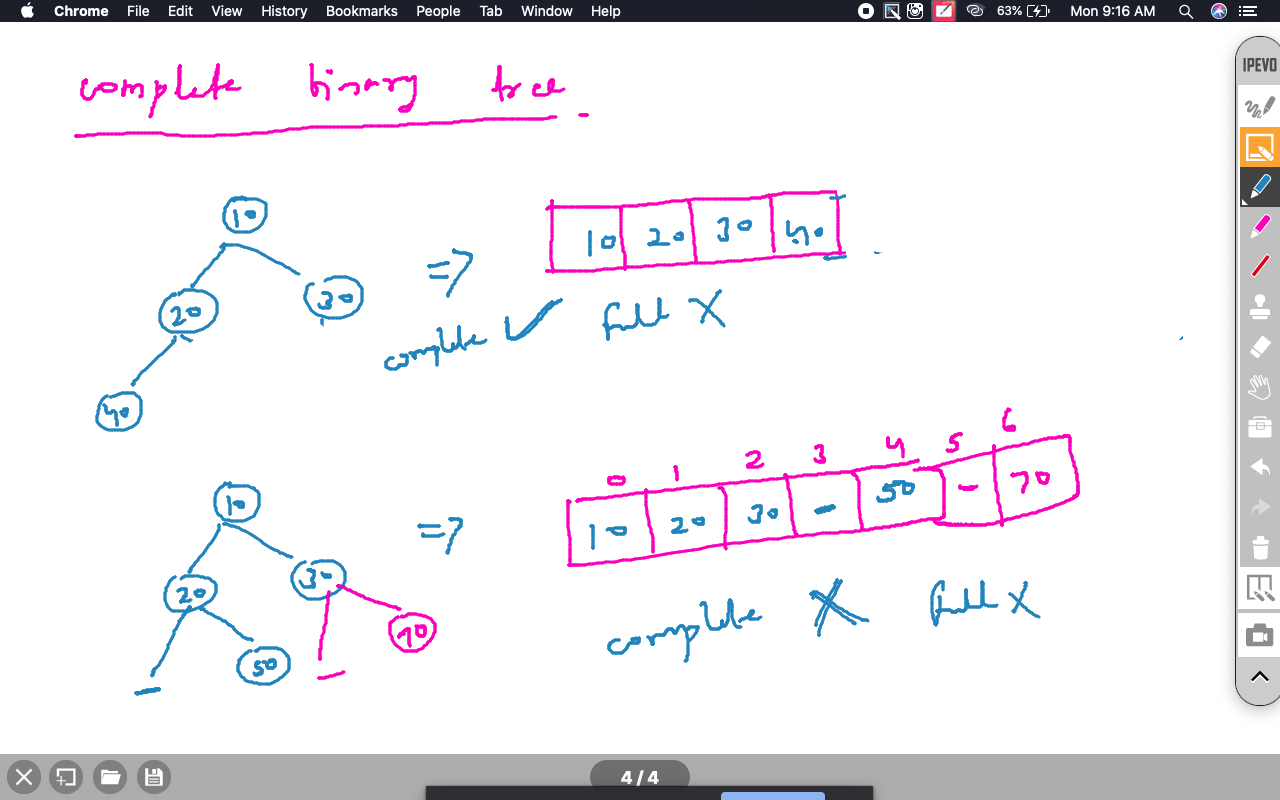 Chrome File Edit View History Bookmarks People Tab Window Help 63% Mon 9:16 AM
IPEVO
complete binary tree.
10
20 30
40
=>
10 20 30 40
complete ✓ full X
10
20 30
50 70
=>
0 1 2 3 4 5 6
10 20 30 - 50 - 70
complete X full X
4 / 4